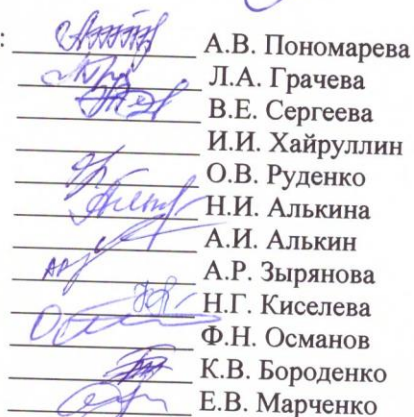 : А.В. Пономарева
Л.А. Грачева
В.Е. Сергеева
И.И. Хайруллин
О.В. Руденко
Н.И. Алькина
А.И. Алькин
А.Р. Зырянова
Н.Г. Киселева
Ф.Н. Османов
К.В. Бороденко
Е.В. Марченко